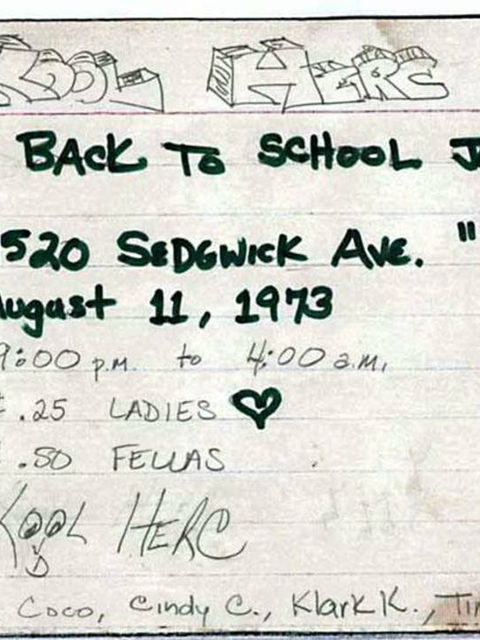 KOOL HERC
BACK TO SCHOOL J
1520 SEDGWICK AVE. "
August 11, 1973
9:00 p.m. to 4:00 a.m.
.25 LADIES ♥
.50 FELLAS
KOOL D HERC
Coco, Cindy C., Klark K., Tim